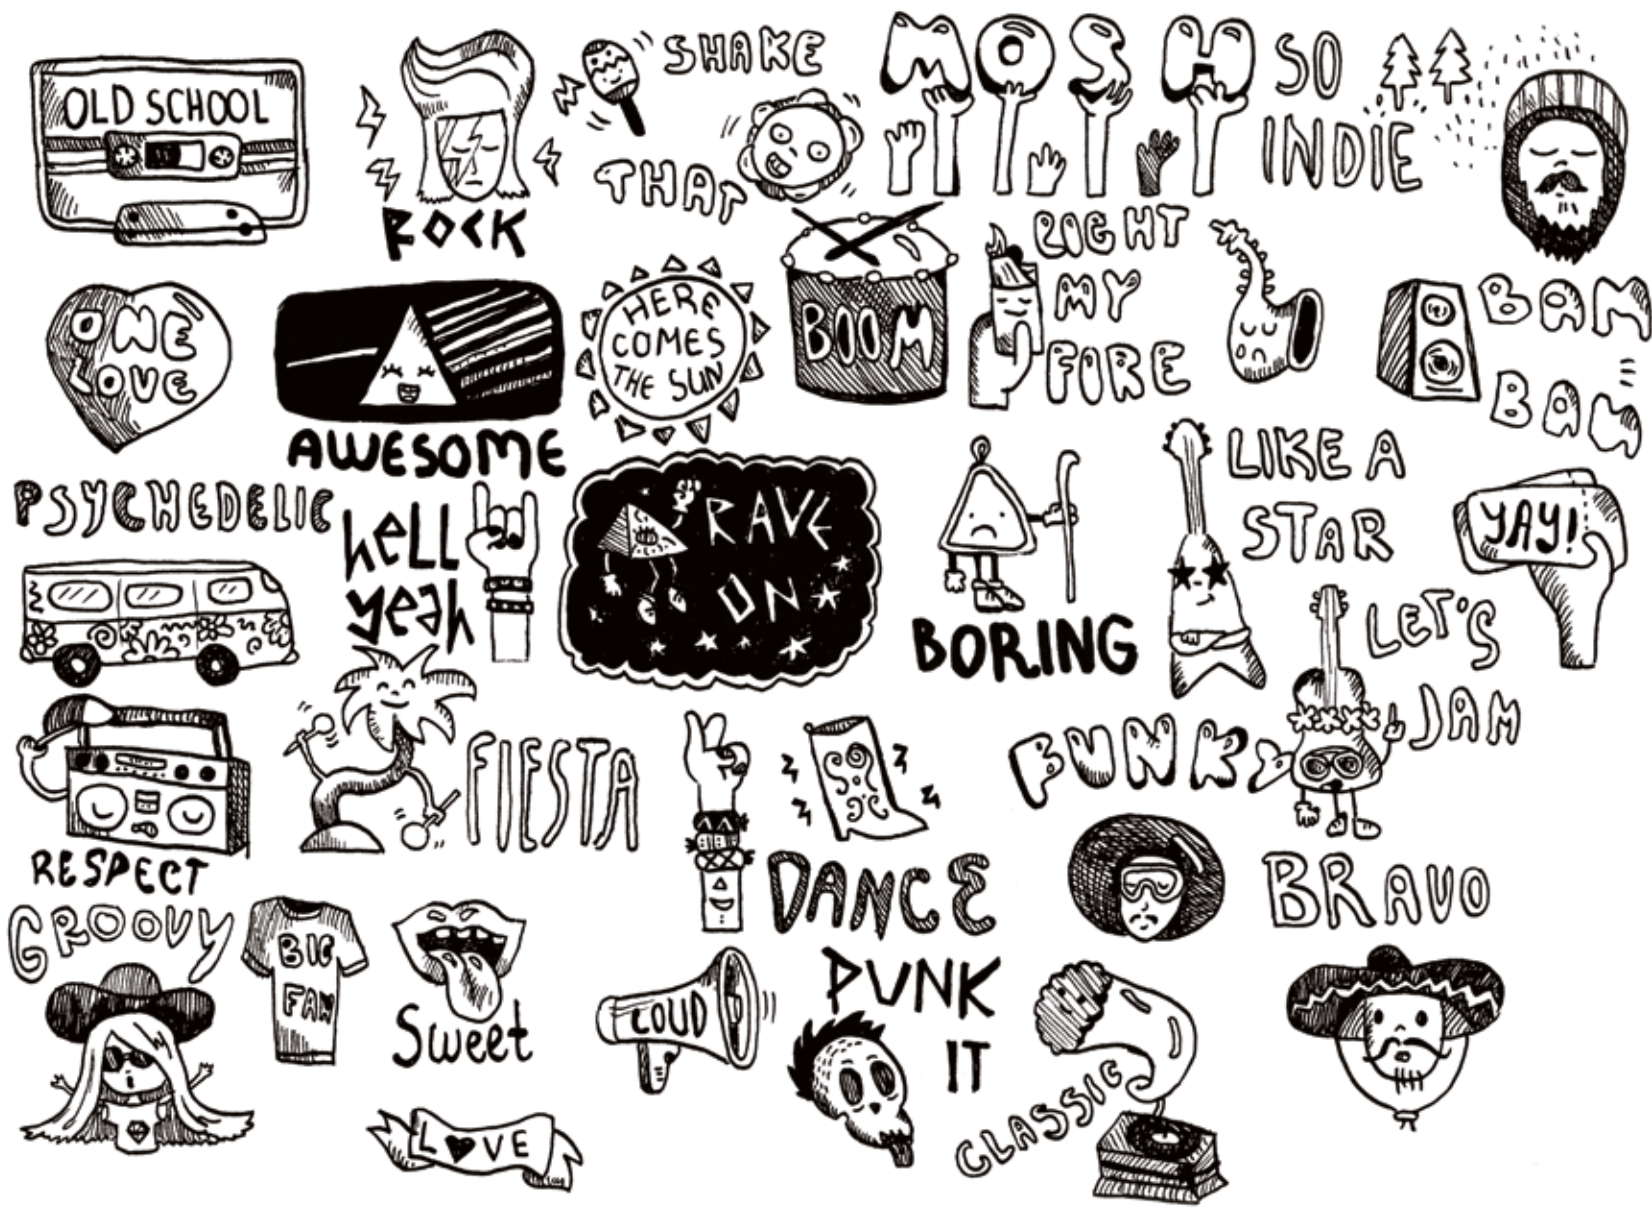 OLD SCHOOL
ROCK
SHAKE
THAT
MOSH
SO
INDIE
ONE
LOVE
AWESOME
HERE
COMES
THE SUN
BOOM
LIGHT
MY
FIRE
BAM
BAM
PSYCHEDELIC
hell
yeah
RAVE
ON
BORING
LIKE A
STAR
YAY!
LET'S
JAM
RESPECT
FIESTA
DANCE
FUNKY
BRAVO
GROOVY
BIG
FAN
Sweet
LOUD
PUNK
IT
CLASSIC
L♥VE